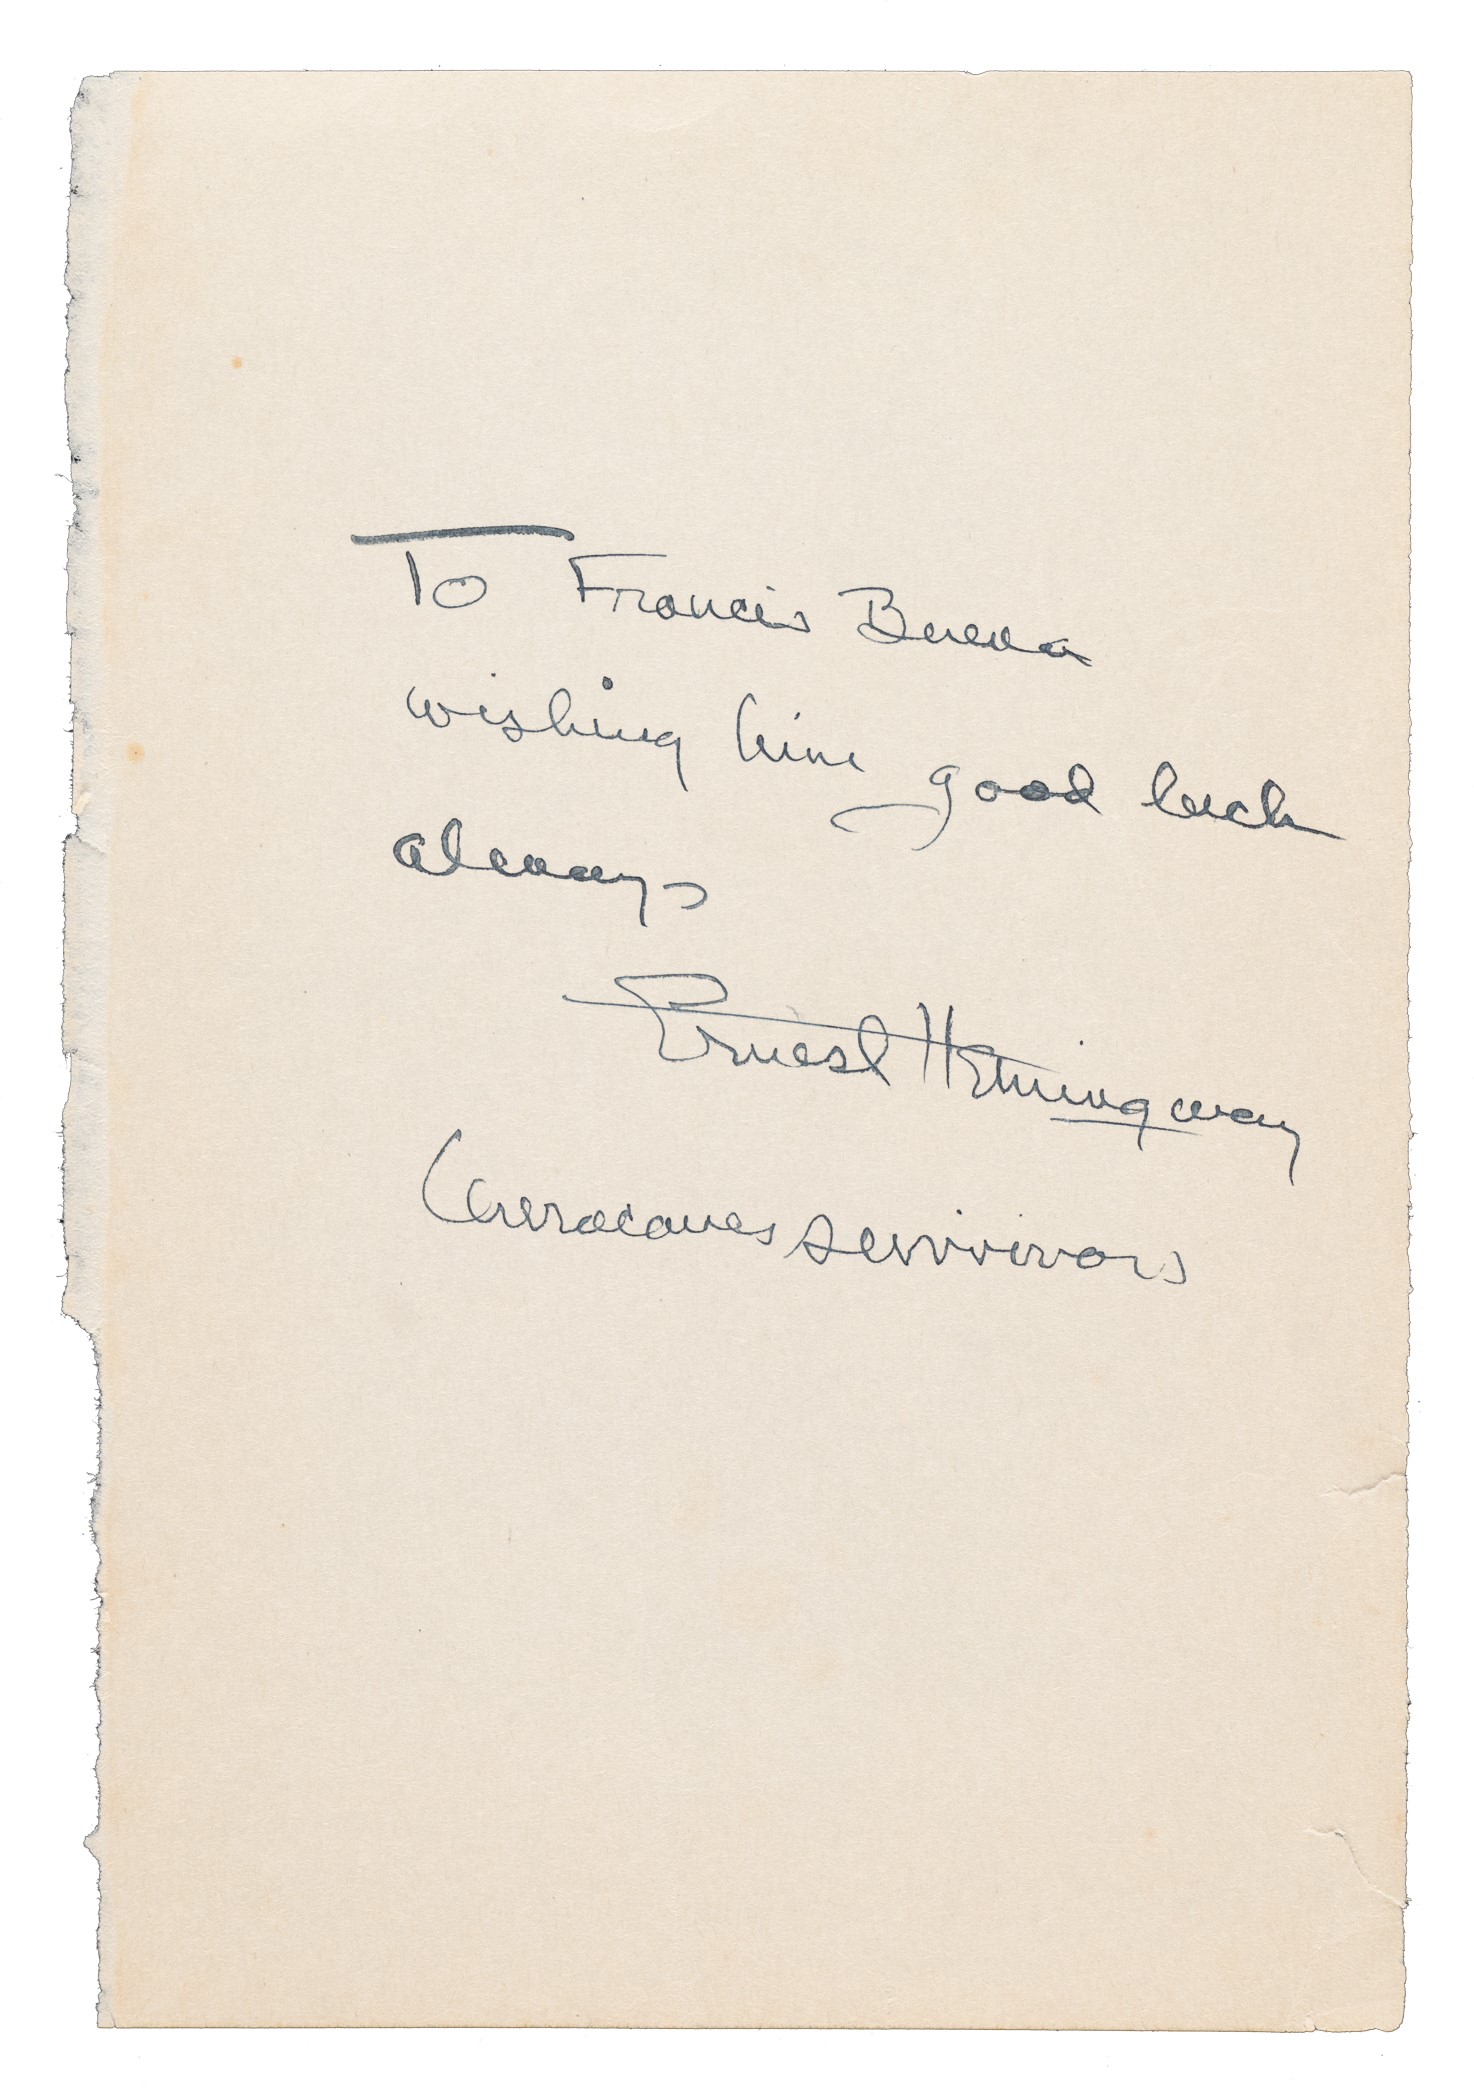 To Francis
wishing him good luck
always
Ernest Hemingway
survivors